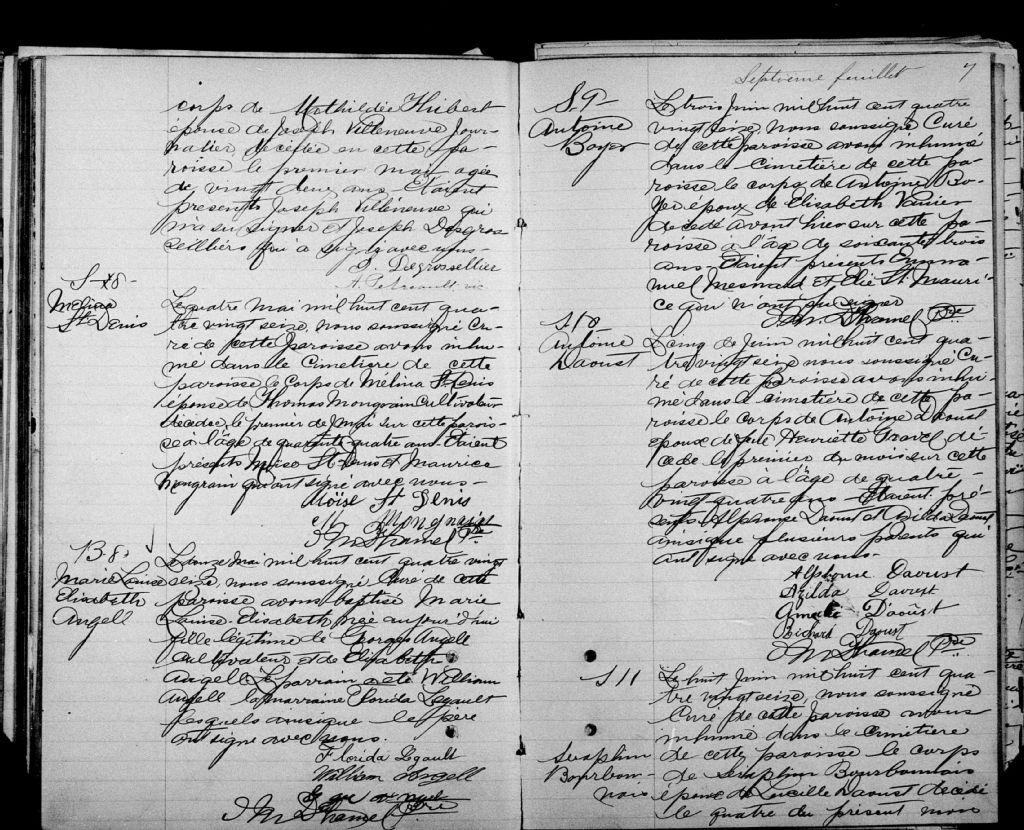 corps de Mathildée Hubert
épouse de Joseph Villeneuve Jour-
nalier, décédée en cette pa-
roisse le premier mai agée
de vingt deux ans. Étaient
présents Joseph Villeneuve qui
n'a su signer et Joseph Desgros
seilliers qui a signé avec nous -
J. Degrosellier
S-8-
Melina
St Denis
Le quatre Mai mil huit cent qua-
tre vingt seize, nous soussigné Cu-
ré de cette paroisse avons inhu-
mé dans le Cimetière de cette
paroisse le Corps de Mélina St Denis
épouse de Thomas Mongrain Cultivateur
décédée le premier de Mai sur cette parois-
se à l'âge de quarante quatre ans. Étaient
présents Moise St Denis et Maurice
Mongrain qui ont signé avec nous -
Moïse St Denis
M Mongrain
Ptre
B-8-
Marie Louise
Elisabeth
Angell
Le onze Mai mil huit cent quatre vingt
seize, nous soussigné Curé de cette
paroisse avons baptisé Marie
Louise-Elisabeth née aujourd'hui
fille légitime de Georges Angell
cultivateur et de Elizabeth
Angell. Le parrain a été William
Angell la marraine Florida Legault
lesquels ainsi que le père
ont signé avec nous.
Florida Legault
William Angell
Ptre
Septième feuillet 7
S. 9-
Antoine
Boyer
Le trois Juin mil huit cent quatre
vingt seize, nous soussigné Curé
de cette paroisse avons inhumé
dans le Cimetière de cette pa-
roisse le corps de Antoine Bo-
yer époux de Elisabeth Vanier
décédé avant hier sur cette pa-
roisse à l'âge de soixante trois
ans. Étaient présents Emma-
nuel Mesnard et Elie St. Mauri-
ce qui n'ont pu signer
Ptre
S 10
Antoine
Daoust
Le cinq de Juin mil huit cent qua-
tre vingt seize nous soussigné Cu-
ré de cette paroisse avons inhu-
mé dans le cimetière de cette pa-
roisse le corps de Antoine Daoust
époux de feue Henriette Gravel dé-
cédé le premier du mois sur cette
paroisse à l'âge de quatre-
vingt quatre ans - Étaient pré-
sents Alphonse Daoust et Azilda Daoust
ainsi que plusieurs parents qui
ont signé avec nous.
Alphonse Daoust
Azilda Daoust
Amelie D'aoust
Richard Daoust
Ptre
S 11
Seraphin
Bourbon-
nais
Le huit Juin mil huit cent qua-
tre vingt seize, nous soussigné
Curé de cette paroisse avons
inhumé dans le cimetière
de cette paroisse le corps
de Séraphin Bourbonnais
époux de Lucille Daoust décédé
le quatre du présent mois